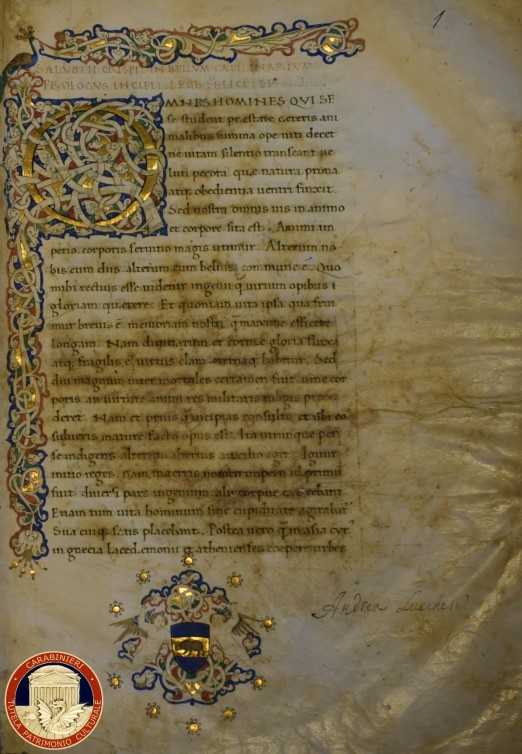 1
SALUSTII CRISPI IN BELLUM CATILINARIUM
PROLOGUS INCIPIT LEGE FELICITER
OMNES HOMINES QUI SE
se student prestare ceteris ani
malibus summa ope niti decet
ne vitam silentio transeant ve
luti pecora que natura prona
atq; obedientia ventri finxit.
Sed nostra omnis vis in animo
et corpore sita est. Animi im
perio corporis servitio magis utimur. Alterum no
bis cum diis alterum cum beluis commune ē. Quo
mihi rectius esse videtur ingenii q̄ virium opibus
gloriam querere. Et quoniam vita ipsa qua frui
mur brevis ē memoriam nostri q̄ maxime efficere
longam. Nam divitiarum et forme gloria fluxa
atq; fragilis ē virtus clara eternaq; habetur. Sed
diu magnum inter mortales certamen fuit vine cor
poris an virtute animi res militaris magis proce
deret. Nam et prius q̄ incipias consulto et ubi co
sulueris mature facto opus est. Ita utrunque per
se indigens alterum alterius auxilio eget. Igitur
initio reges nam in terris nomen imperii id primum
fuit diversi pars ingenium alii corpus exercebant.
Etiam tum vita hominum sine cupiditate agitabat
Sua cuiq; satis placebant. Postea vero q̄ in asia cyr
in grecia Lacedemonii et athenienses coepere urbes
Andrea Luechese
CARABINIERI
TUTELA PATRIMONIO CULTURALE